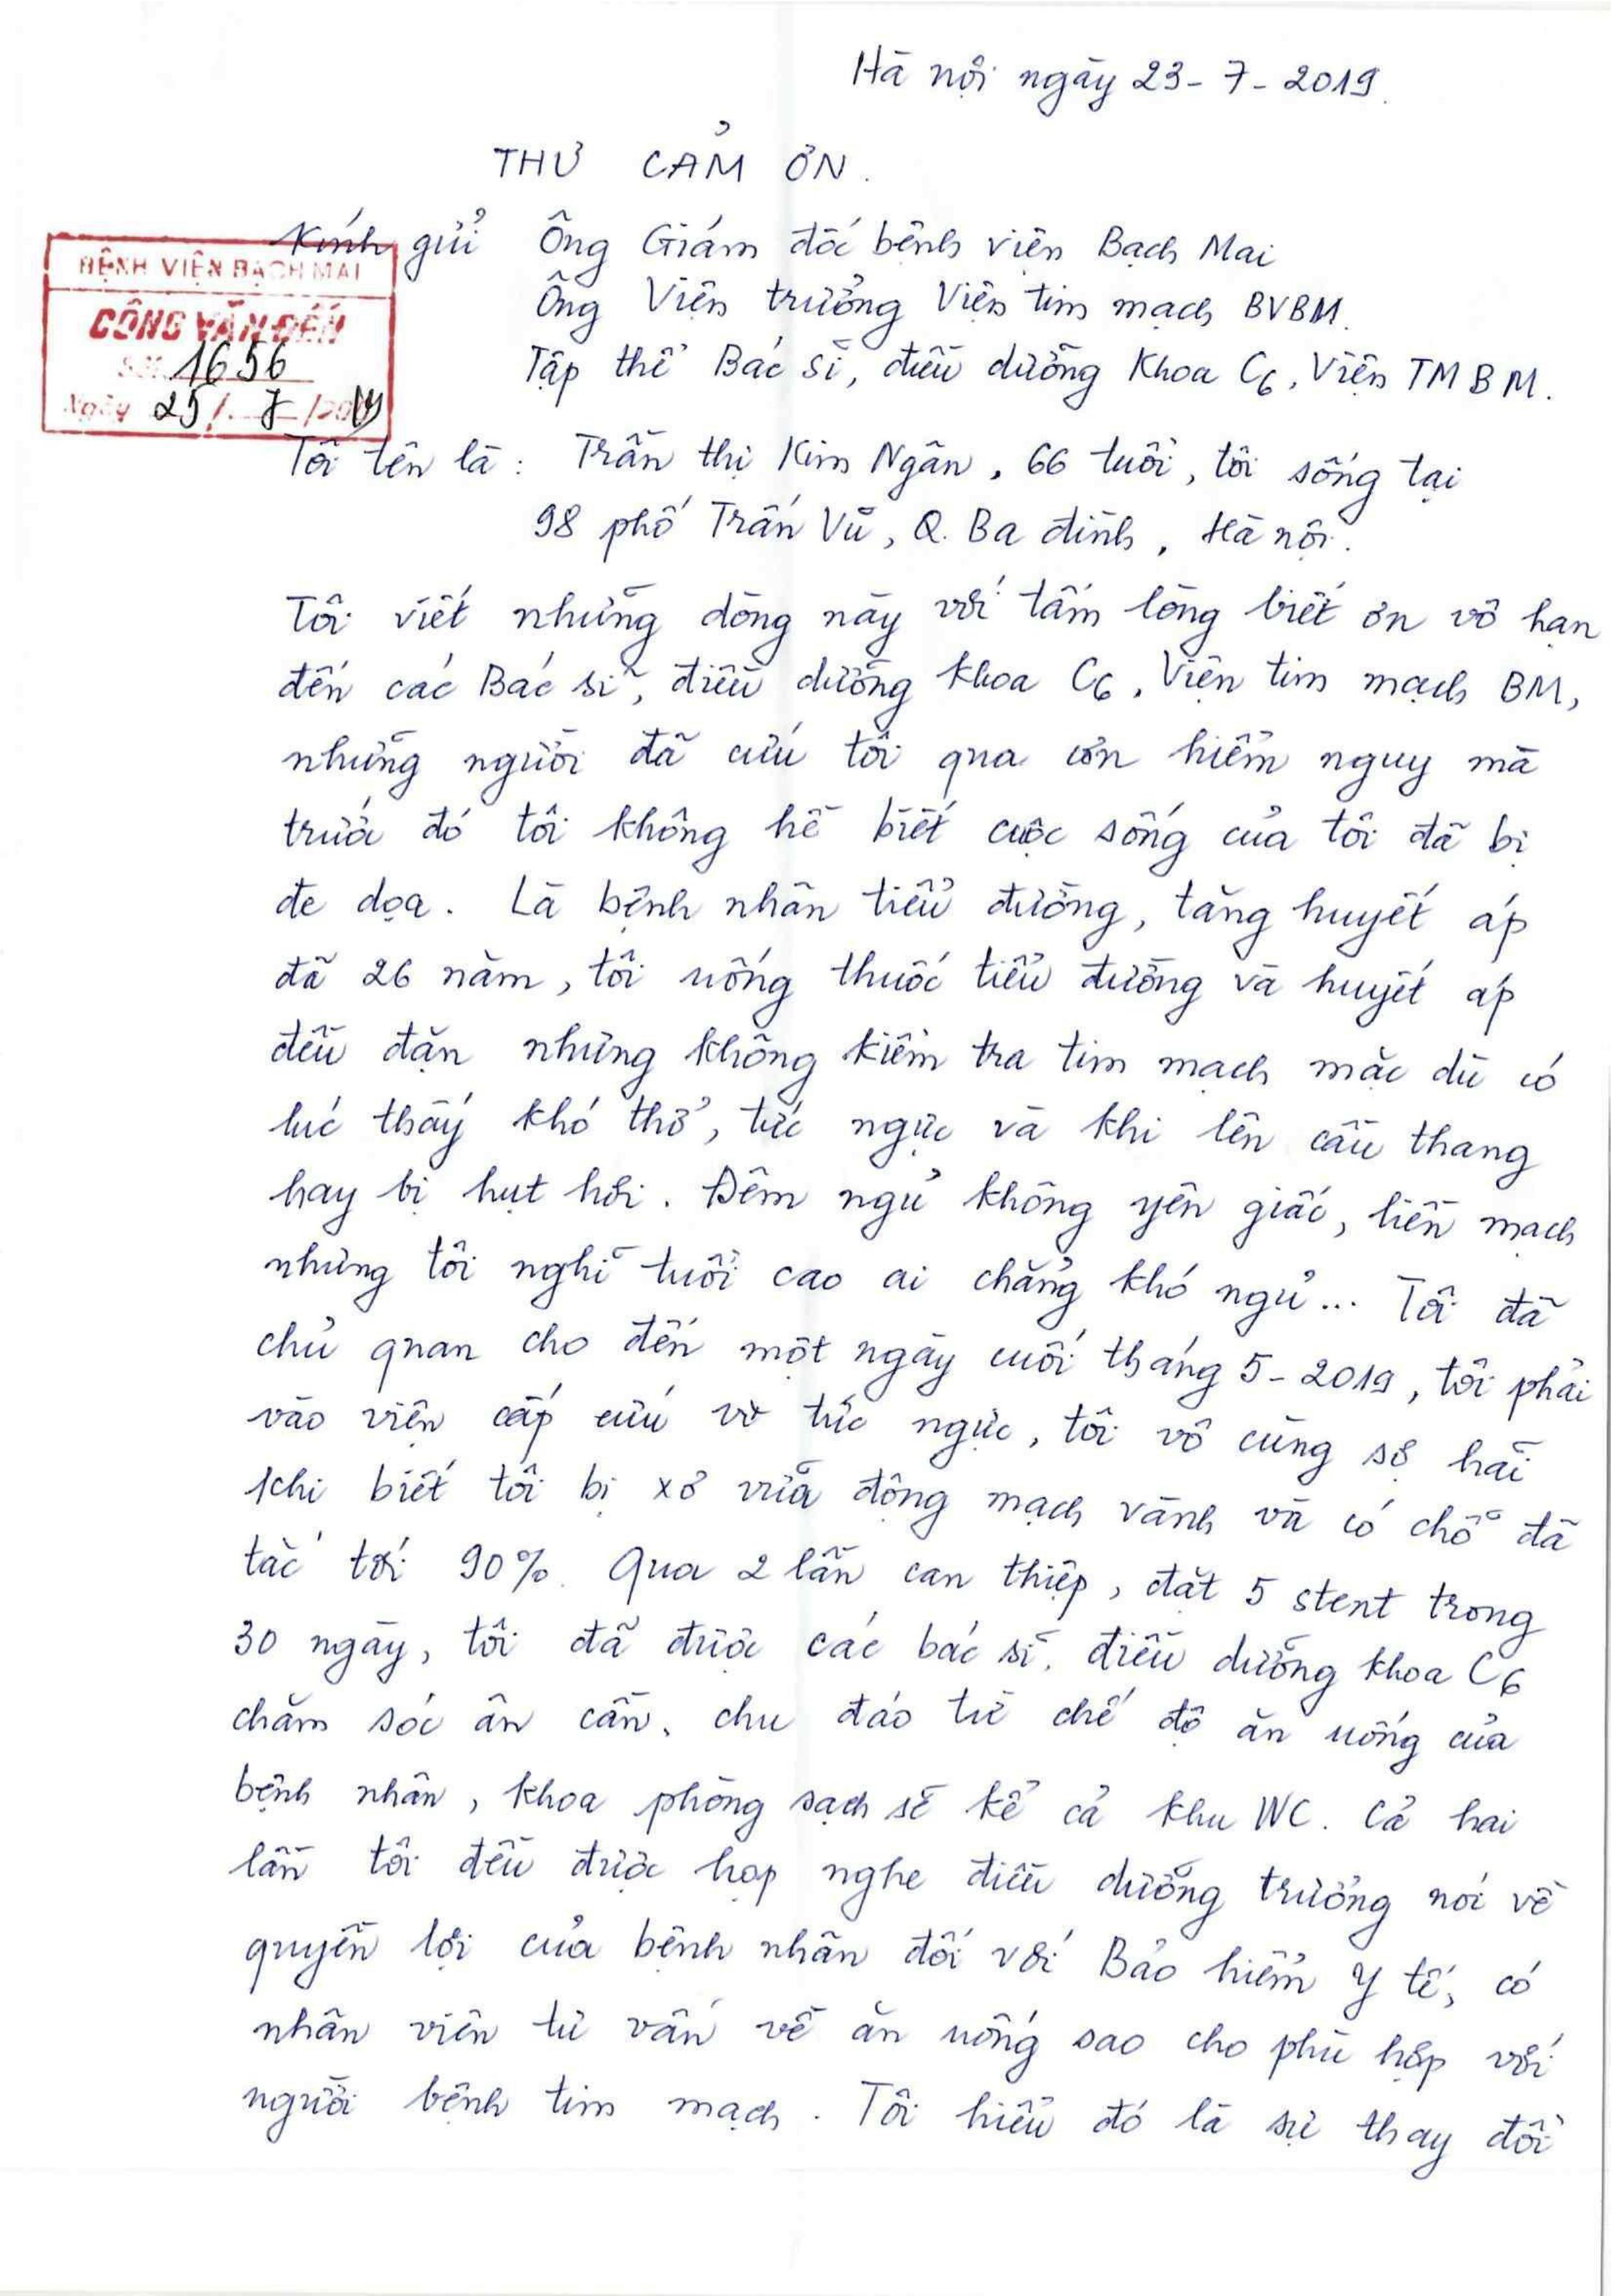 Hà nội ngày 23-7-2019.
THƯ CẢM ƠN.
Kính gửi Ông Giám đốc bệnh viện Bạch Mai
Ông Viện trưởng Viện tim mạch BVBM.
Tập thể Bác sĩ, điều dưỡng Khoa C6, Viện TMBM.
BỆNH VIỆN BẠCH MAI
CÔNG VĂN ĐẾN
Số: 1656
Ngày 25/7/2019
Tôi tên là : Trần thị Kim Ngân, 66 tuổi, tôi sống tại
98 phố Trấn Vũ, Q. Ba đình, Hà nội.
Tôi viết những dòng này với tấm lòng biết ơn vô hạn
đến các Bác sĩ, điều dưỡng khoa C6, Viện tim mạch BM,
những người đã cứu tôi qua cơn hiểm nguy mà
trước đó tôi không hề biết cuộc sống của tôi đã bị
đe dọa. Là bệnh nhân tiểu đường, tăng huyết áp
đã 26 năm, tôi uống thuốc tiểu đường và huyết áp
đều đặn nhưng không kiểm tra tim mạch mặc dù có
lúc thấy khó thở, tức ngực và khi lên cầu thang
hay bị hụt hơi. Đêm ngủ không yên giấc, liền mạch
nhưng tôi nghĩ tuổi cao ai chẳng khó ngủ... Tôi đã
chủ quan cho đến một ngày cuối tháng 5-2019, tôi phải
vào viện cấp cứu vì tức ngực, tôi vô cùng sợ hãi
khi biết tôi bị xơ vữa động mạch vành và có chỗ đã
tắc tới 90%. Qua 2 lần can thiệp, đặt 5 stent trong
30 ngày, tôi đã được các bác sĩ, điều dưỡng khoa C6
chăm sóc ân cần, chu đáo từ chế độ ăn uống của
bệnh nhân, khoa phòng sạch sẽ kể cả khu WC. Cả hai
lần tôi đều được họp nghe điều dưỡng trưởng nói về
quyền lợi của bệnh nhân đối với Bảo hiểm Y tế, có
nhân viên tư vấn về ăn uống sao cho phù hợp với
người bệnh tim mạch. Tôi hiểu đó là sự thay đổi